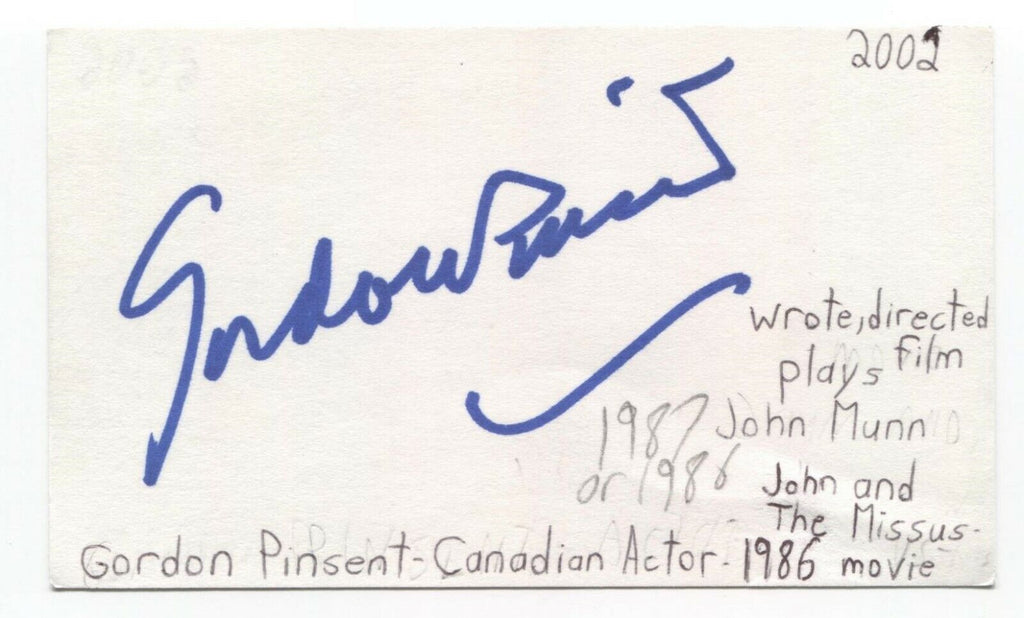 2002
Gordon Pinsent
wrote, directed
plays film
1987 John Munn
or 1986 John and
The Missus-
Gordon Pinsent-Canadian Actor-1986 movie